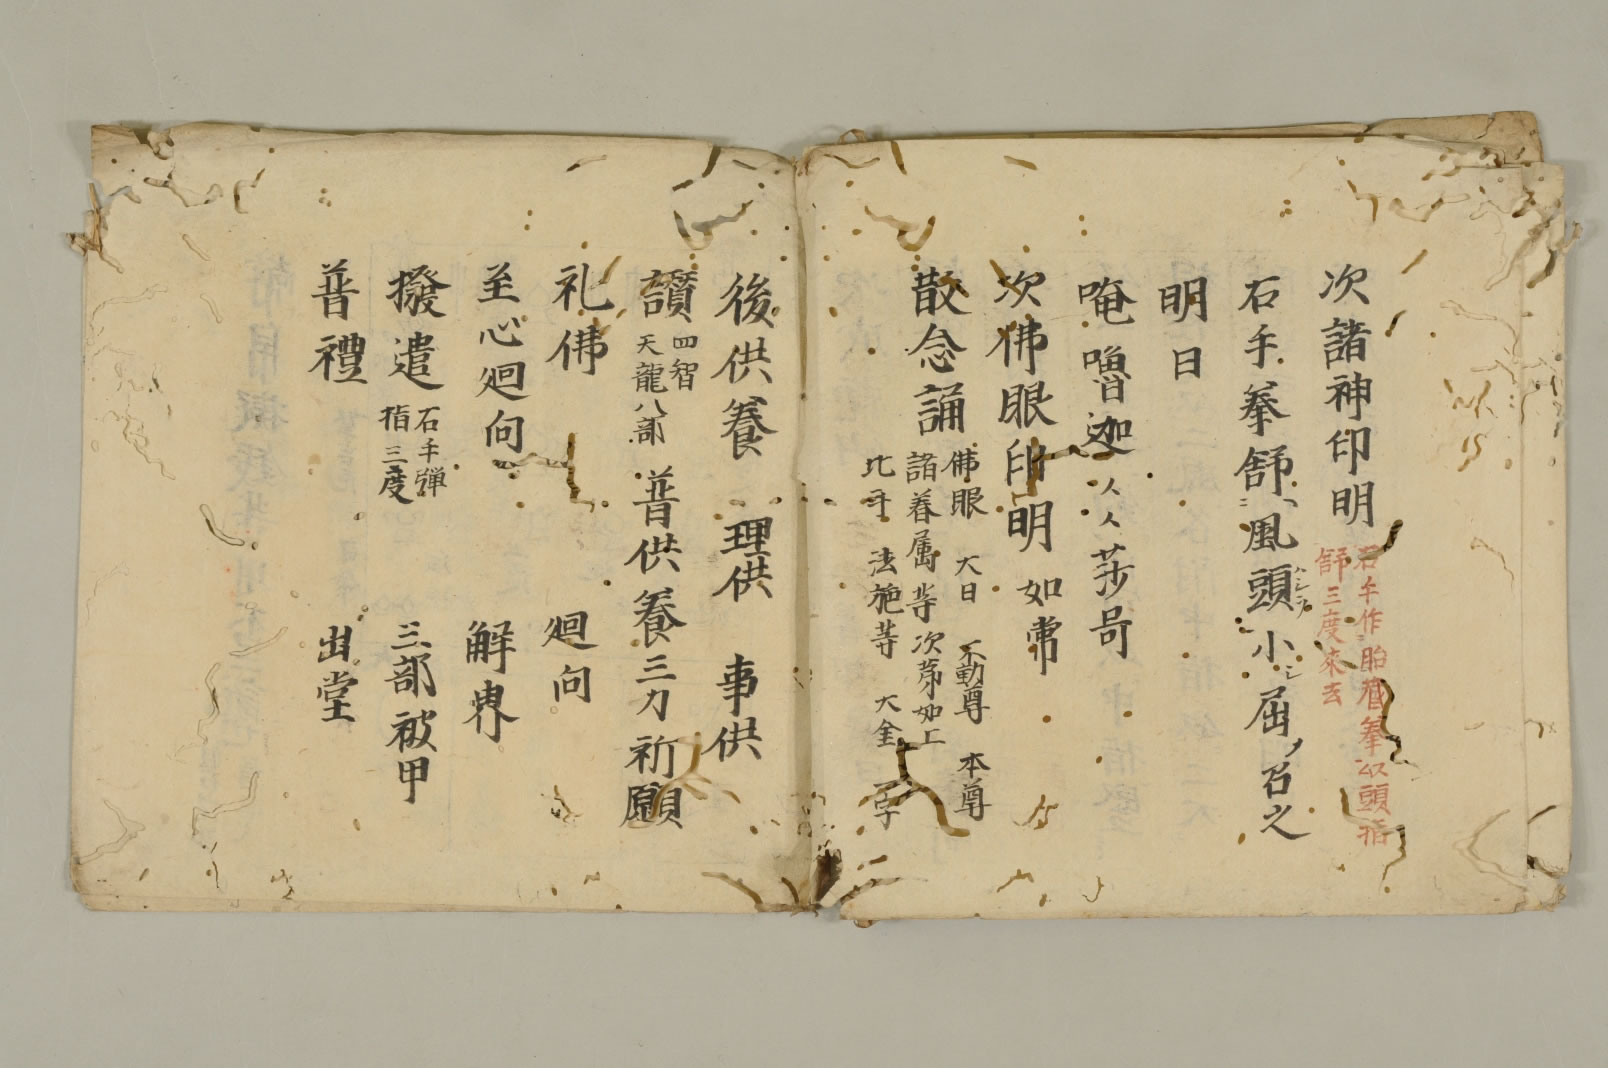 次諸神印明
石手作胎蔵拳以頭指
舒三度來去
石手拳舒風頭小屈召之
明曰
唵嚕迦人人莎呵
次佛眼印明如常
散念誦
佛眼 大日 不動尊 本尊
諸眷属等次第如上
法施等 大金 一字
後供養 理供 事供
讃
四智
天龍八部
普供養三力 祈願
礼佛 廻向
至心廻向 解界
撥遣
石手彈
指三度
三部被甲
普禮 出堂